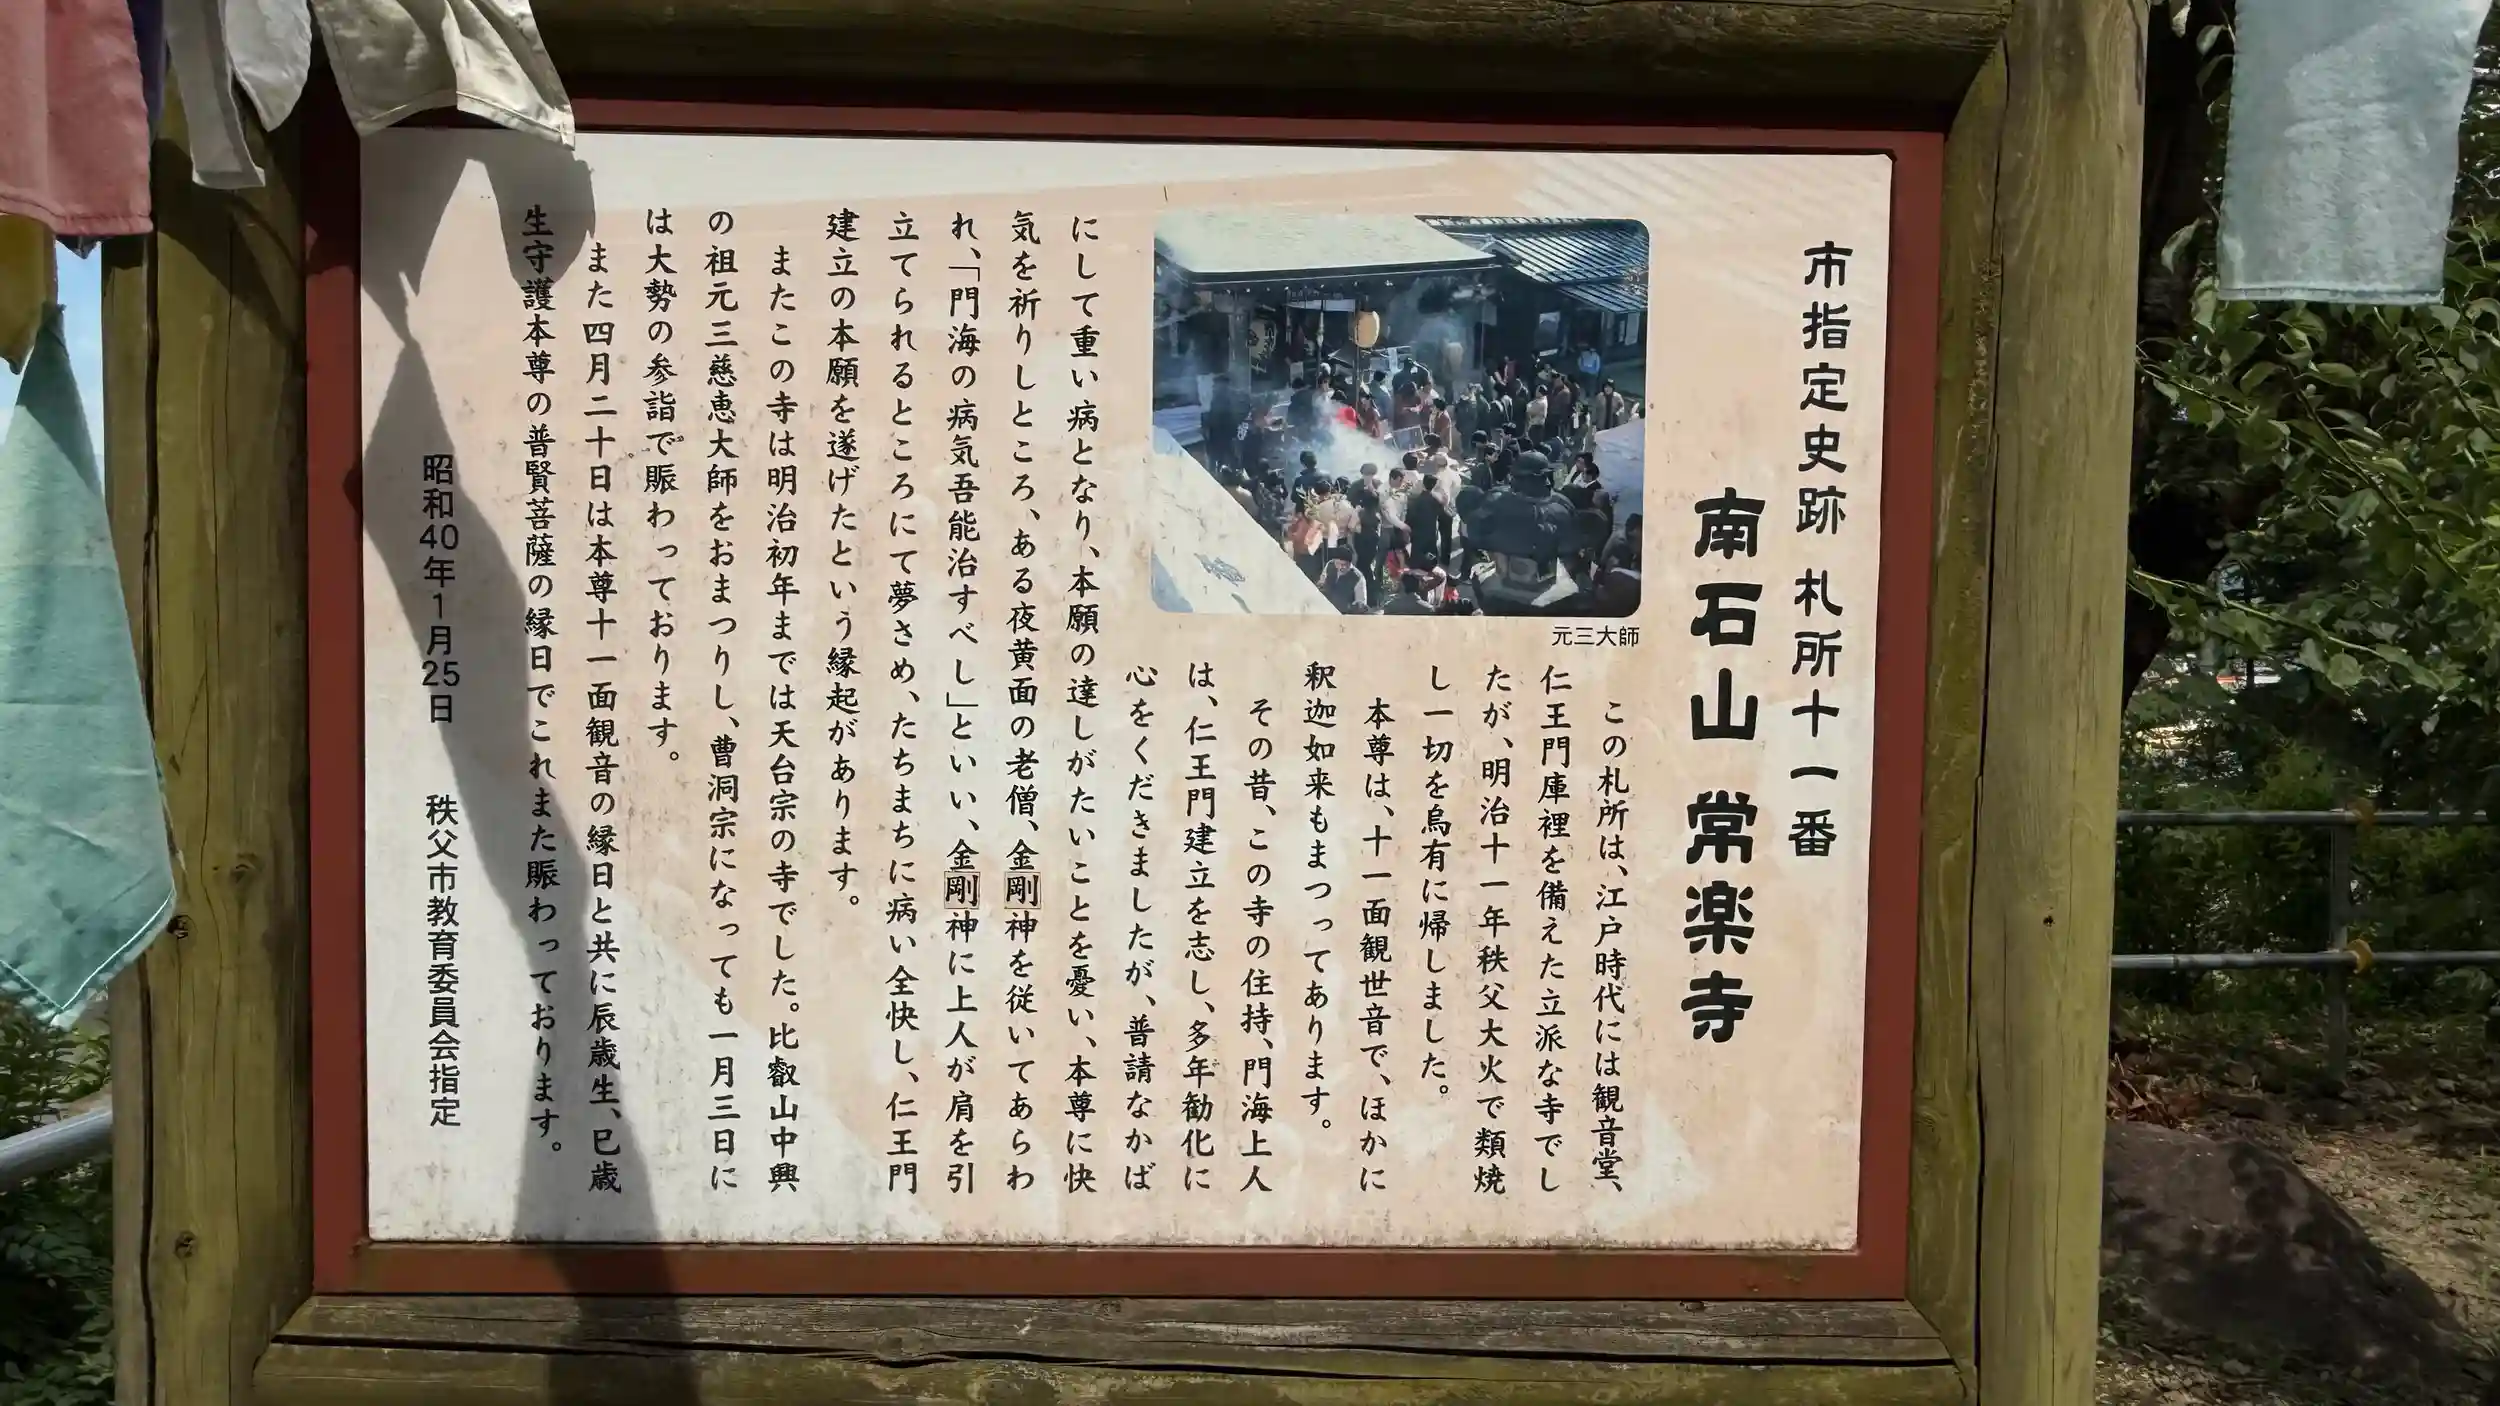 市指定史跡 札所十一番
南石山 常楽寺
元三大師
この札所は、江戸時代には観音堂、
仁王門庫裡を備えた立派な寺でし
たが、明治十一年秩父大火で類焼
し一切を烏有に帰しました。
本尊は、十一面観世音で、ほかに
釈迦如来もまつってあります。
その昔、この寺の住持、門海上人
は、仁王門建立を志し、多年勧化に
心をくだきましたが、普請なかば
にして重い病となり、本願の達しがたいことを憂い、本尊に快
気を祈りしところ、ある夜黄面の老僧、金剛神を従いてあらわ
れ、「門海の病気吾能治すべし」といい、金剛神に上人が肩を引
立てられるところにて夢さめ、たちまちに病い全快し、仁王門
建立の本願を遂げたという縁起があります。
またこの寺は明治初年までは天台宗の寺でした。比叡山中興
の祖元三慈恵大師をおまつりし、曹洞宗になっても一月三日に
は大勢の参詣で賑わっております。
また四月二十日は本尊十一面観音の縁日と共に辰歳生、巳歳
生守護本尊の普賢菩薩の縁日でこれまた賑わっております。
昭和40年1月25日 秩父市教育委員会指定